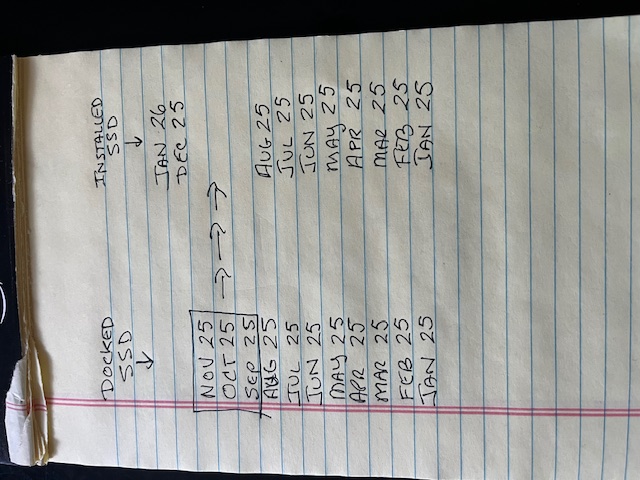 DOCKED INSTALLED
SSD SSD
↓ ↓
JAN 26
DEC 25
NOV 25
OCT 25 → → →
SEP 25
AUG 25 AUG 25
JUL 25 JUL 25
JUN 25 JUN 25
MAY 25 MAY 25
APR 25 APR 25
MAR 25 MAR 25
FEB 25 FEB 25
JAN 25 JAN 25